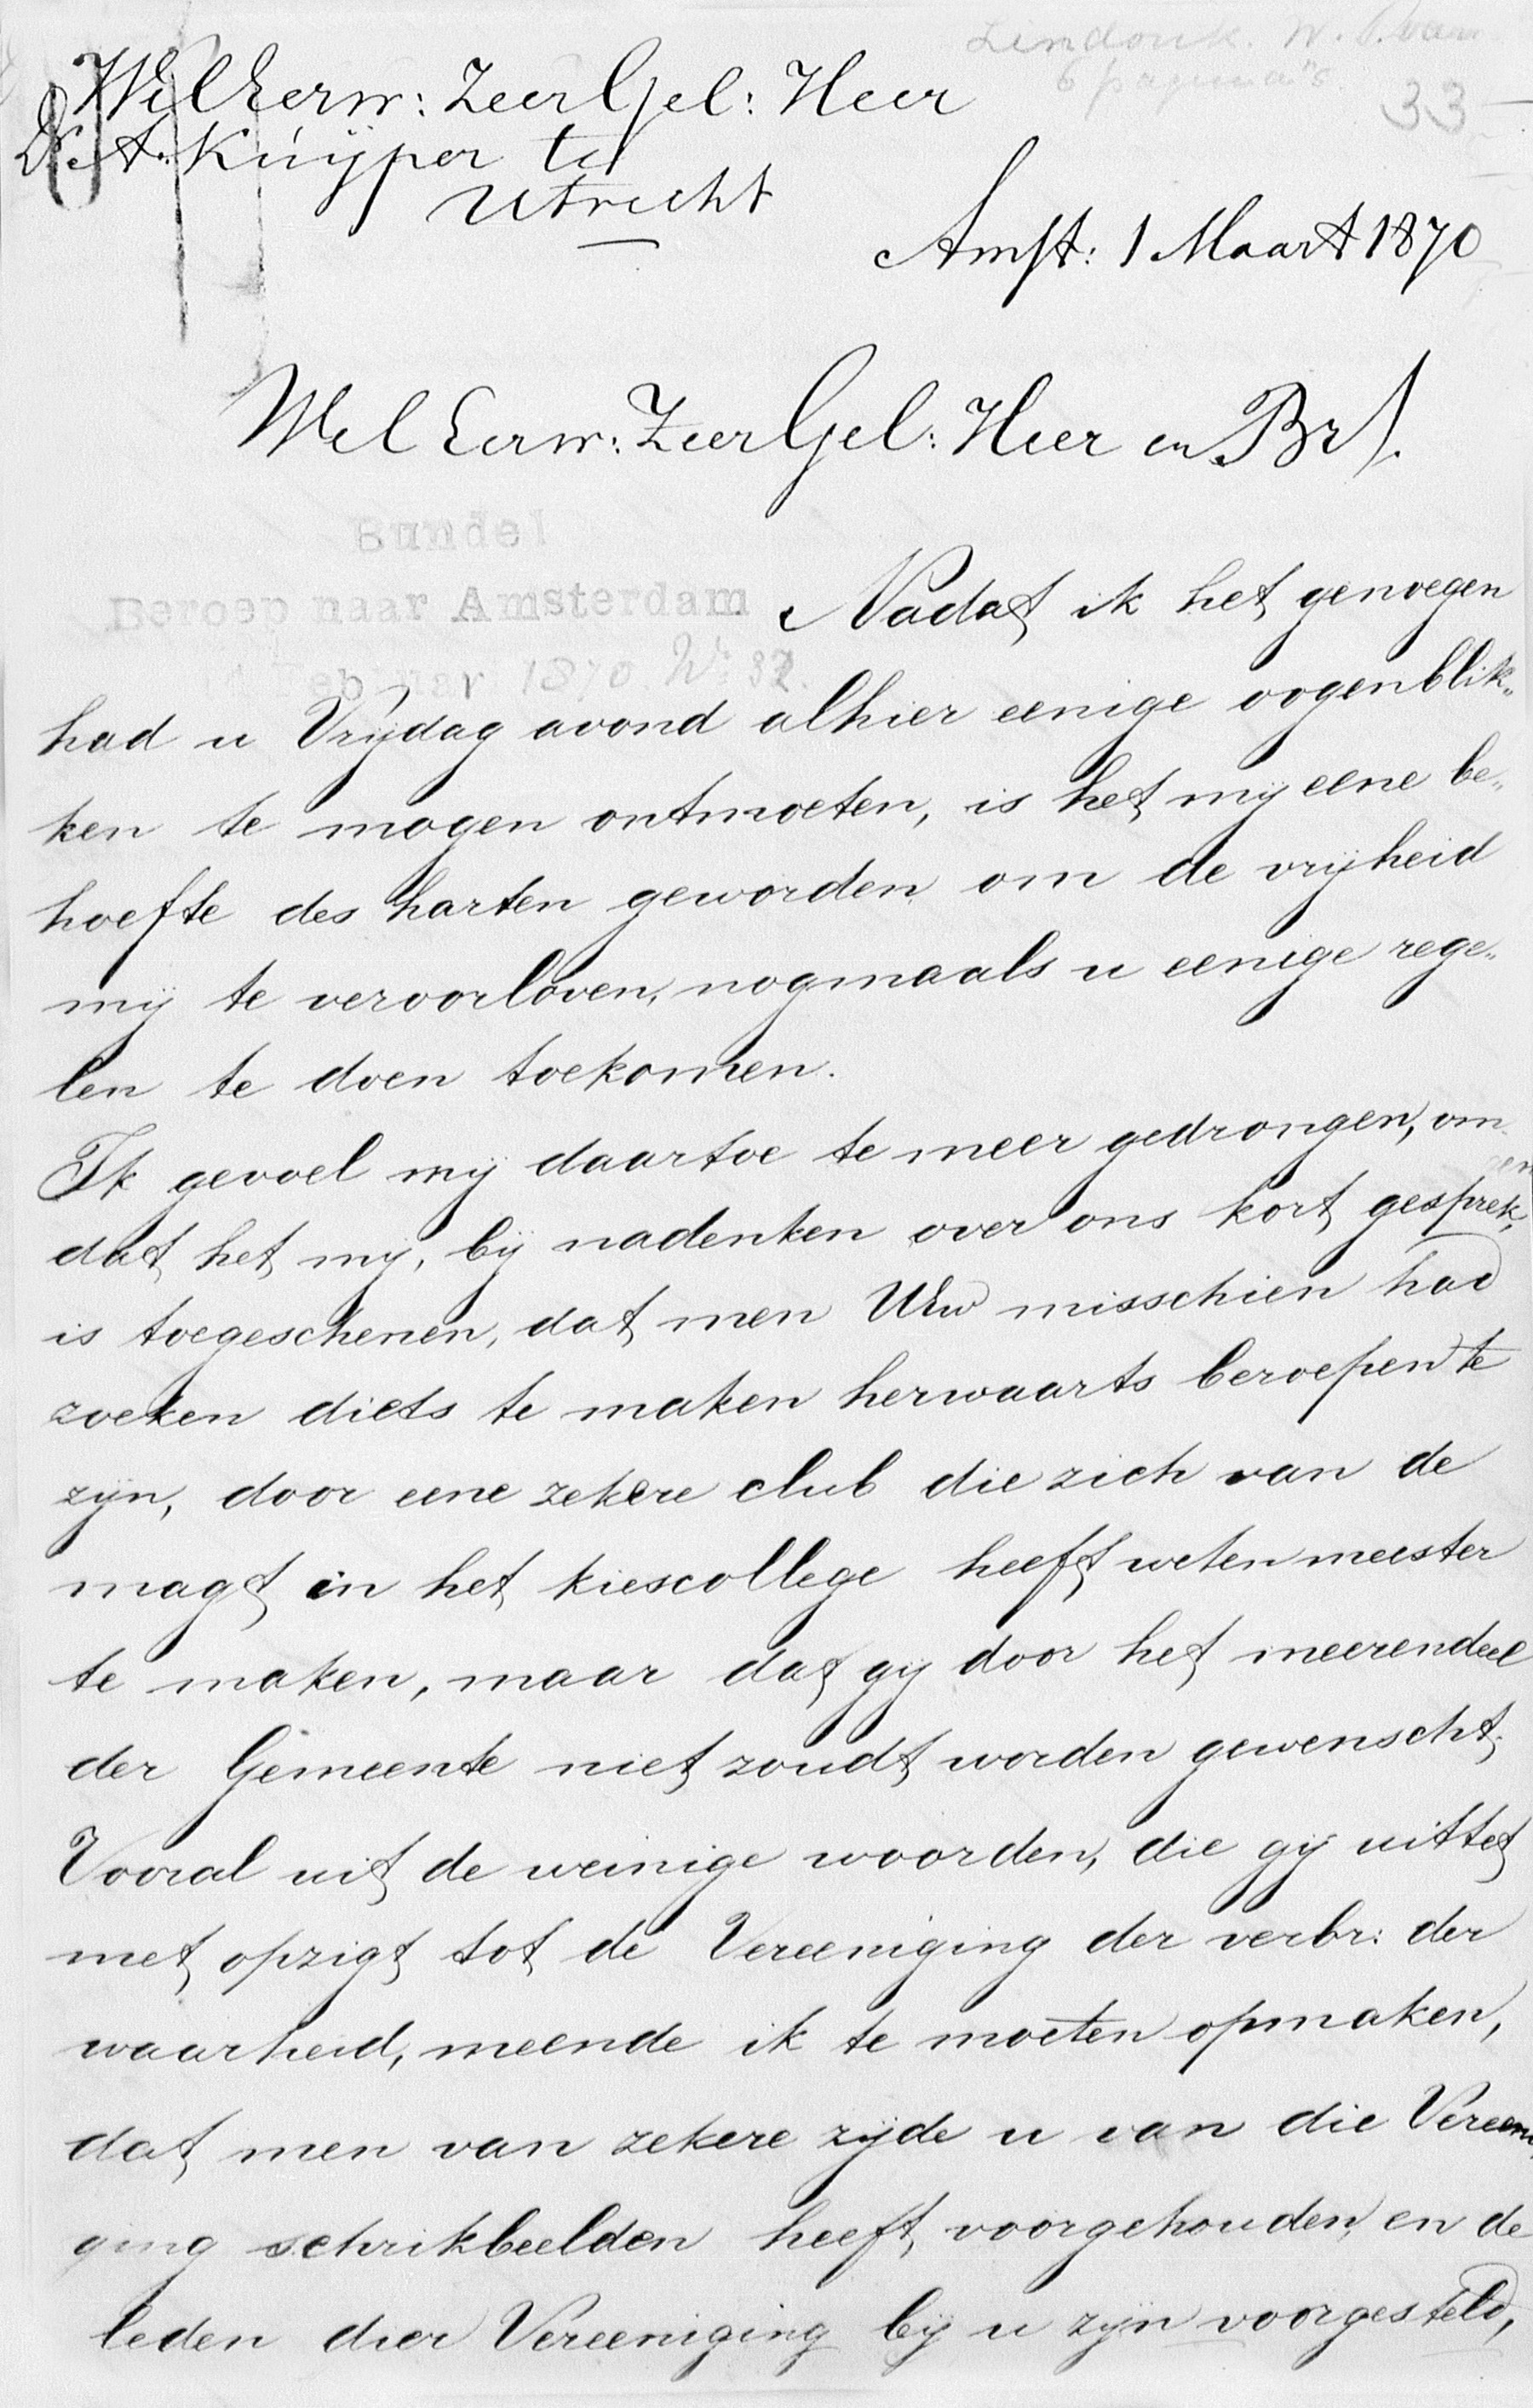 Lindonk. W. P. van
6 pagina's
33
WelEerw: ZeerGel: Heer
Dr A. Kuÿper te
Utrecht
Amst: 1 Maart 1870
WelEerw: ZeerGel: Heer en Br/.
Bundel
Beroep naar Amsterdam
Februari 1870 No 32
Nadat ik het genoegen
had u Vrijdag avond alhier eenige oogenblik„
ken te mogen ontmoeten, is het mij eene be„
hoefte des harten geworden om de vrijheid
mij te veroorloven, nogmaals u eenige rege„
len te doen toekomen.
Ik gevoel mij daartoe te meer gedrongen, om
dat het mij, bij nadenken over ons kort gesprek,
is toegeschenen, dat men UEw misschien had
zoeken diets te maken herwaarts beroepen te
zijn, door eene zekere club die zich van de
magt in het kiescollege heeft weten meester
te maken, maar dat gij door het meerendeel
der Gemeente niet zoudt worden gewenscht.
Vooral uit de weinige woorden, die gij uittet
met opzigt tot de Vereeniging der verbr: der
waarheid, meende ik te moeten opmaken,
dat men van zekere zijde u van die Vereeni
ging schrikbeelden heeft voorgehouden, en de
leden dier Vereeniging bij u zijn voorgesteld,